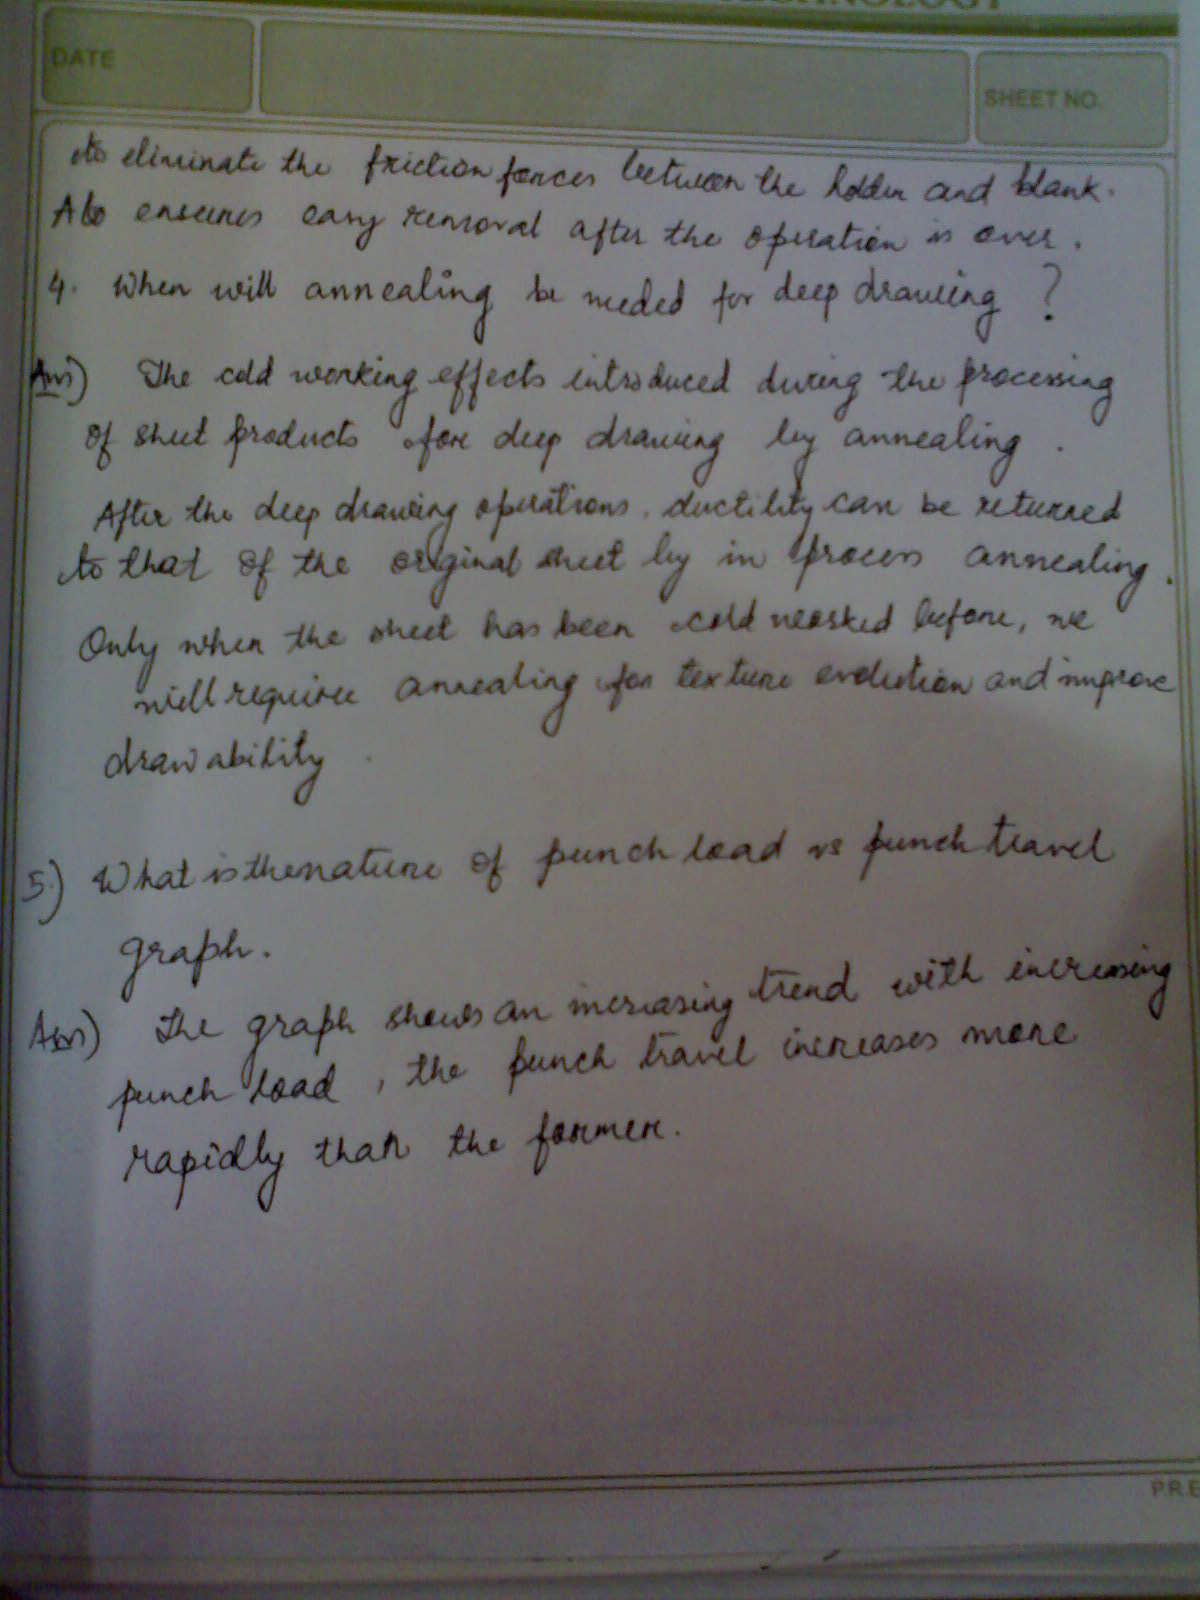 TECHNOLOGY
DATE
SHEET NO.
to eliminate the friction forces between the holder and blank.
Also ensures easy removal after the operation is over.
4. When will annealing be needed for deep drawing ?
Ans) The cold working effects introduced during the processing
of sheet products for deep drawing by annealing .
After the deep drawing operations, ductility can be returned
to that of the original sheet by in process annealing.
Only when the sheet has been cold worked before, we
will require annealing for texture evolution and improve
drawability .
5.) What is the nature of punch load vs punch travel
graph.
Ans) The graph shows an increasing trend with increasing
punch load , the punch travel increases more
rapidly than the former.